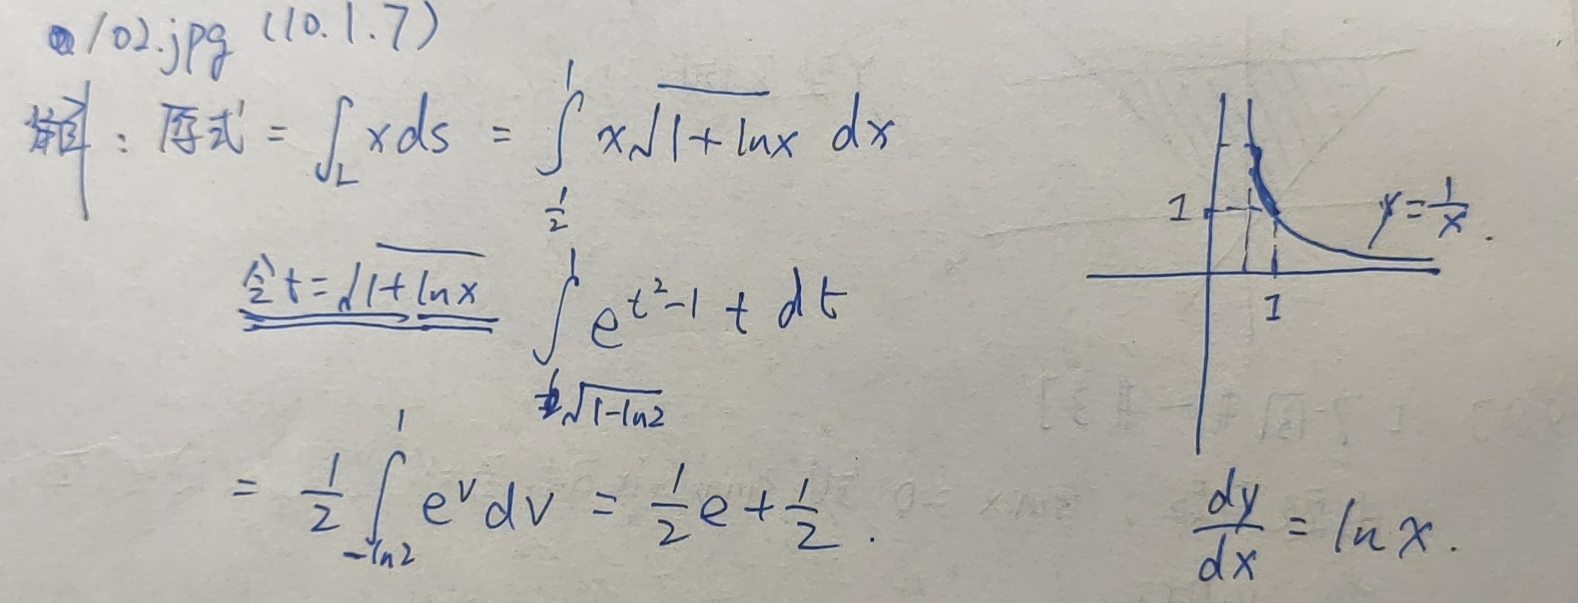 102.jpg (10.1.7)
解：原式 = ∫_L xds = ∫_{1/2}^{1} x√(1+lnx) dx
令t=√(1+lnx) ∫_{√(1-ln2)}^{1} e^{t²-1} t dt
= 1/2 ∫_{-ln2}^{1} e^v dv = 1/2 e + 1/2 .
1
y = 1/x .
1
dy/dx = ln x .